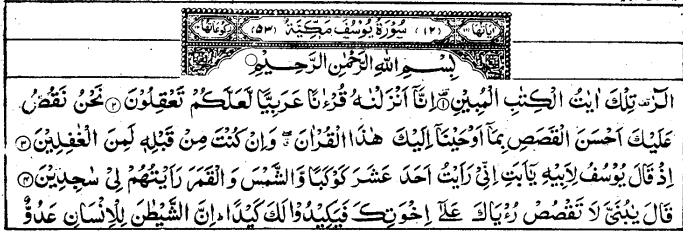 اٰیاتها ١١١ (١٢) سُوْرَةُ یُوْسُفَ مَكِّیَّةٌ (٥٣) ركوعاتها ١٢
بِسْمِ اللّٰهِ الرَّحْمٰنِ الرَّحِیْمِ
الٓرٰ ۫ تِلْكَ اٰیٰتُ الْكِتٰبِ الْمُبِیْنِ ۝١ اِنَّاۤ اَنْزَلْنٰهُ قُرْءٰنًا عَرَبِیًّا لَّعَلَّكُمْ تَعْقِلُوْنَ ۝٢ نَحْنُ نَقُصُّ
عَلَیْكَ اَحْسَنَ الْقَصَصِ بِمَاۤ اَوْحَیْنَاۤ اِلَیْكَ هٰذَا الْقُرْاٰنَ ۖ وَاِنْ كُنْتَ مِنْ قَبْلِهٖ لَمِنَ الْغٰفِلِیْنَ ۝٣
اِذْ قَالَ یُوْسُفُ لِاَبِیْهِ یٰۤاَبَتِ اِنِّیْ رَاَیْتُ اَحَدَ عَشَرَ كَوْكَبًا وَّالشَّمْسَ وَالْقَمَرَ رَاَیْتُهُمْ لِیْ سٰجِدِیْنَ ۝٤
قَالَ یٰبُنَیَّ لَا تَقْصُصْ رُءْیَاكَ عَلٰۤی اِخْوَتِكَ فَیَكِیْدُوْا لَكَ كَیْدًا ؕ اِنَّ الشَّیْطٰنَ لِلْاِنْسَانِ عَدُوٌّ